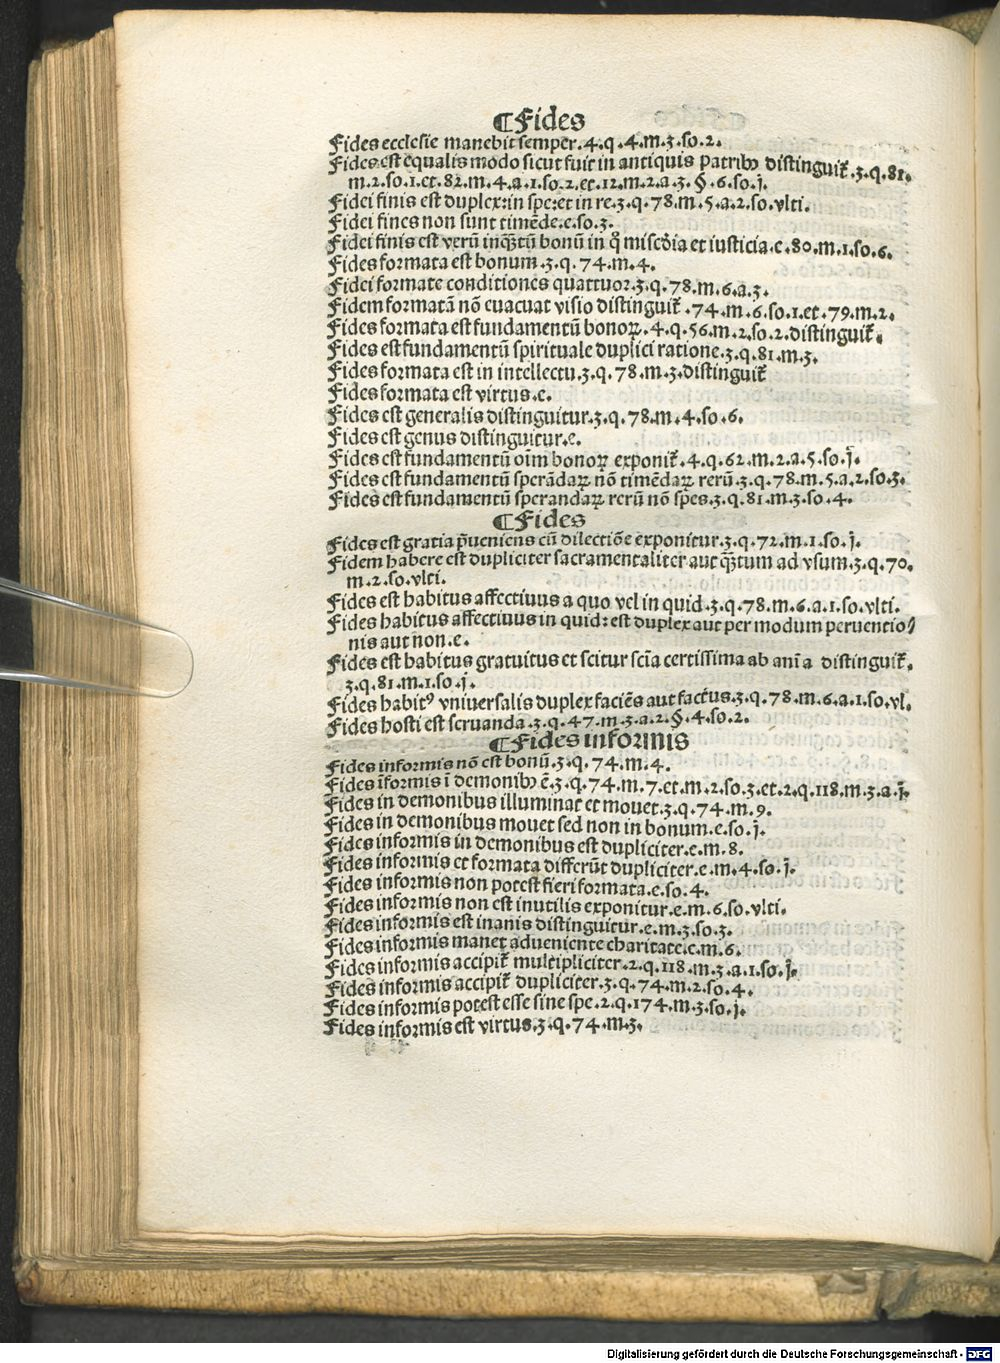 ¶Fides
Fides ecclesie manebit semper.4.q.4.m.3.so.2.
Fides est equalis modo sicut fuit in antiquis patribꝰ distinguit̄.3.q.81.
m.2.so.1.et.82.m.4.a.1.so.2.et.12.m.2.a.3.§.6.so.j.
Fidei finis est duplex:in spe:et in re.3.q.78.m.5.a.2.so.vlti.
Fidei fines non sunt timēde.e.so.3.
Fidei finis est verū inqꝫtū bonū in q̊ misc̄dia et iusticia.e.80.m.1.so.6.
Fides formata est bonum.3.q.74.m.4.
Fidei formate conditiones quattuor.3.q.78.m.6.a.3.
Fidem formatā nō euacuat visio distinguit̄.74.m.6.so.1.et.79.m.2.
Fides formata est fundamentū bonoꝝ.4.q.56.m.2.so.2.distinguit̄.
Fides est fundamentū spirituale duplici ratione.3.q.81.m.3.
Fides formata est in intellectu.3.q.78.m.3.distinguit̄
Fides formata est virtus.e.
Fides est generalis distinguitur.3.q.78.m.4.so.6.
Fides est genus distinguitur.e.
Fides est fundamentū oīm bonoꝝ exponit̄.4.q.62.m.2.a.5.so.j.
Fides est fundamentū sperādaꝝ nō timēdaꝝ rerū.3.q.78.m.5.a.2.so.3.
Fides est fundamentū sperandaꝝ rerū nō spes.3.q.81.m.3.so.4.
¶Fides
Fides est gratia p̄ueniens cū dilectiōe exponitur.3.q.72.m.1.so.j.
Fidem habere est dupliciter sacramentaliter aut qꝫtum ad vsum.3.q.70.
m.2.so.vlti.
Fides est habitus affectiuus a quo vel in quid.3.q.78.m.6.a.1.so.vlti.
Fides habitus affectiuus in quid:est duplex aut per modum peruentio/
nis aut non.e.
Fides est habitus gratuitus et scitur scīa certissima ab anīa distinguit̄.
3.q.81.m.1.so.j.
Fides habitꝰ vniuersalis duplex faciēs aut factus.3.q.78.m.6.a.1.so.vl.
Fides hosti est seruanda.3.q.47.m.3.a.2.§.4.so.2.
¶Fides informis
Fides informis nō est bonū.3.q.74.m.4.
Fides īformis ī demonibꝰ ē.3.q.74.m.7.et.m.2.so.3.et.2.q.118.m.3.a.j.
Fides in demonibus illuminat et mouet.3.q.74.m.9.
Fides in demonibus mouet sed non in bonum.e.so.j.
Fides informis in demonibus est dupliciter.e.m.8.
Fides informis et formata differūt dupliciter.e.m.4.so.j.
Fides informis non potest fieri formata.e.so.4.
Fides informis non est inutilis exponitur.e.m.6.so.vlti.
Fides informis est inanis distinguitur.e.m.3.so.3.
Fides informis manet adueniente charitate.e.m.6.
Fides informis accipit̄ multipliciter.2.q.118.m.3.a.1.so.j.
Fides informis accipit̄ dupliciter.3.q.74.m.2.so.4.
Fides informis potest esse sine spe.2.q.174.m.3.so.j.
Fides informis est virtus.3.q.74.m.3.
Digitalisierung gefördert durch die Deutsche Forschungsgemeinschaft - DFG